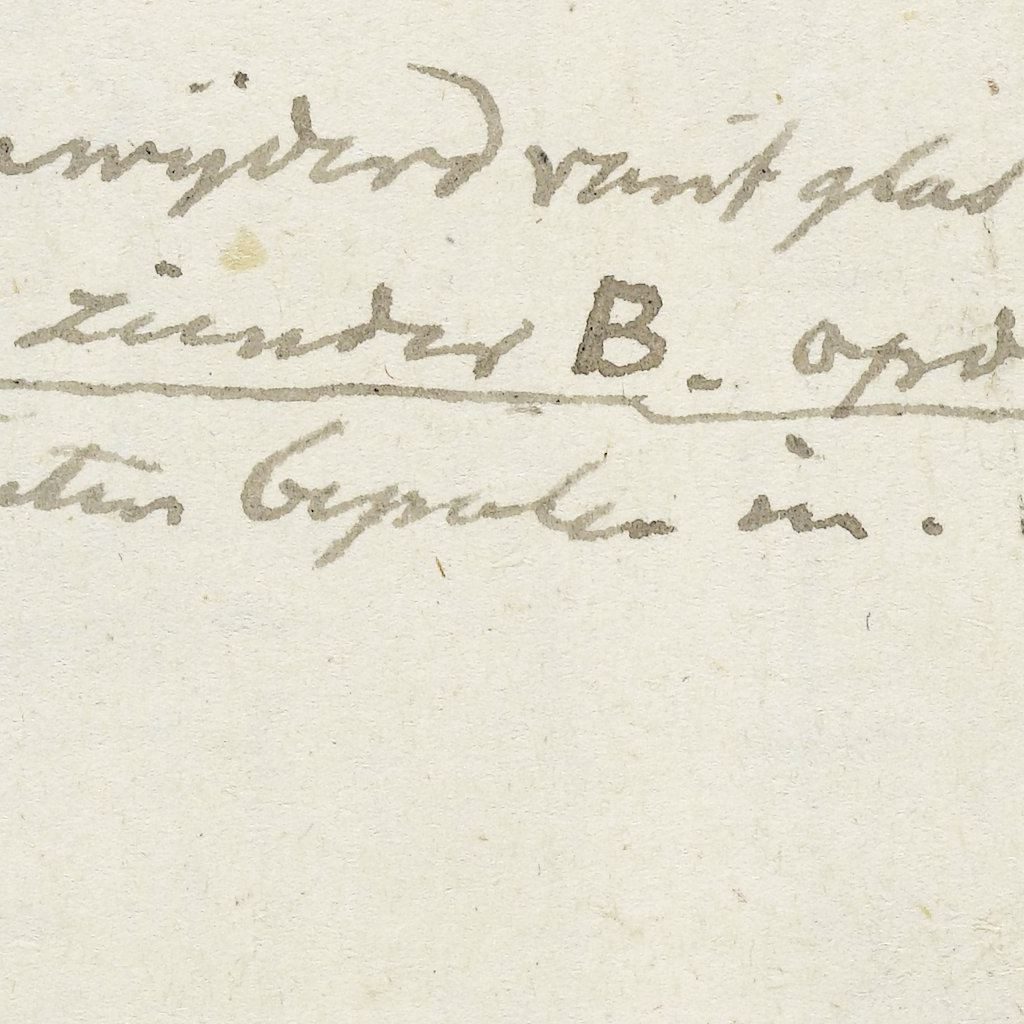 wijderd vant glas
ziender B. opd
bepalen in.